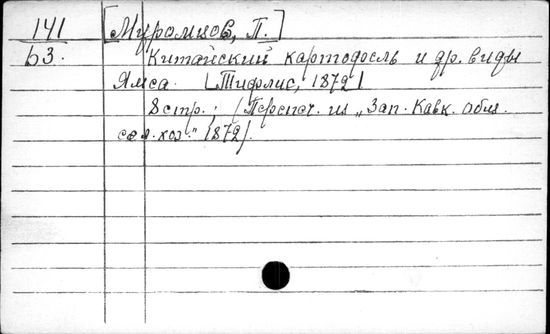 141 [Муромцов, П.]
63. Китайский картофель и др. виды
Ямса. [Тифлис, 1872]
8 стр.; (Перепеч. из „Зап. Кавк. общ.
сел. хоз." 1872).